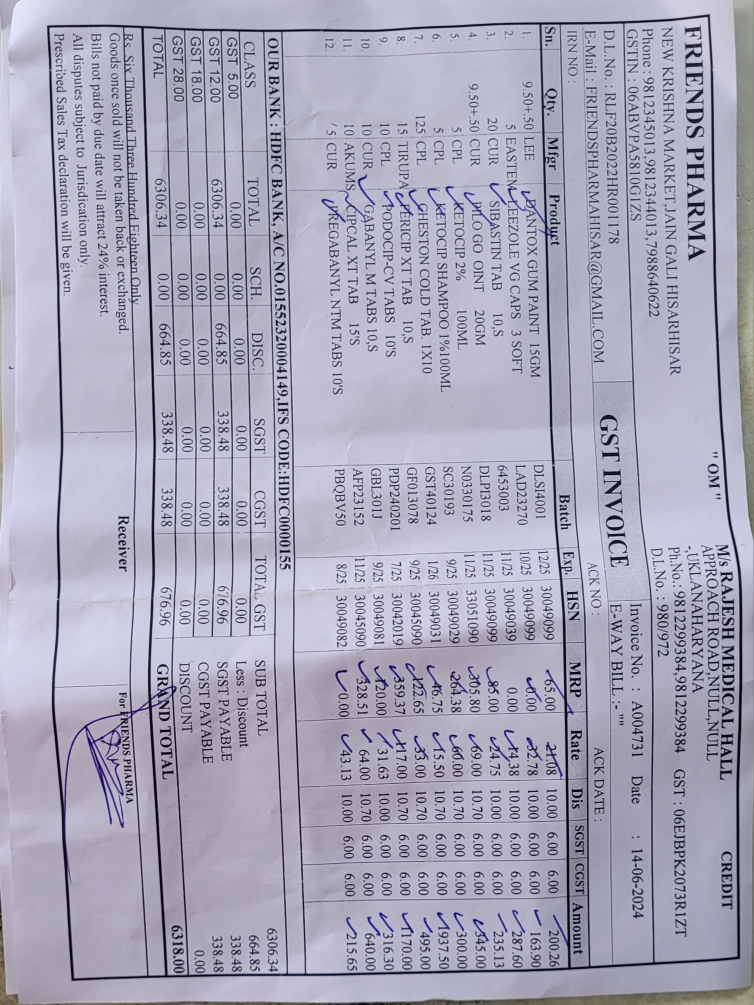 "OM"
CREDIT
FRIENDS PHARMA
NEW KRISHNA MARKET,JAIN GALI HISARHISAR
Phone : 9812345013,9812344013,7988640622
GSTIN : 06ABVPA5810G1ZS
D.L.No. : RLF20B2022HR001178
E-Mail : FRIENDSPHARMAHISAR@GMAIL.COM
M/s RAJESH MEDICAL HALL
APPROACH ROAD,NULL,NULL
-,UKLANAHARYANA
Ph.No.: 9812299384,9812299384 GST : 06EJBPK2073R1ZT
D.L.No. : 980/972
GST INVOICE
Invoice No. : A004731 Date : 14-06-2024
E-WAY BILL :- ""
IRN NO : ACK NO : ACK DATE :
Sn. Qty. Mfgr Product Batch Exp. HSN MRP Rate Dis SGST CGST Amount
1. 9.50+.50 LEE DANTOX GUM PAINT 15GM DLSI4001 12/25 30049099 65.00 21.08 10.00 6.00 6.00 200.26
2. 5 EASTERN LEEZOLE VG CAPS 3 SOFT LAD23270 10/25 30049099 0.00 32.78 10.00 6.00 6.00 163.90
3. 20 CUR SIBASTIN TAB 10,S 6453003 11/25 30049039 0.00 14.38 10.00 6.00 6.00 287.60
4. 9.50+.50 CUR PILO GO OINT 20GM DLPI3018 11/25 30049099 85.00 24.75 10.00 6.00 6.00 235.13
5. 5 CPL KETOCIP 2% 100ML N0330175 11/25 33051090 305.80 69.00 10.70 6.00 6.00 345.00
6. 5 CPL KETOCIP SHAMPOO 1%100ML SC30193 9/25 30049029 264.38 60.00 10.70 6.00 6.00 300.00
7. 125 CPL CHESTON COLD TAB. 1X10 GST40124 1/26 30049031 46.75 15.50 10.70 6.00 6.00 1937.50
8. 15 TIRUPA PERICIP XT TAB 10,S GF013078 9/25 30045090 122.65 33.00 10.70 6.00 6.00 495.00
9. 10 CPL PODOCIP-CV TABS 10'S PDP240201 7/25 30042019 359.37 117.00 10.70 6.00 6.00 1170.00
10. 10 CUR GABANYL M TABS 10,S GBL301J 9/25 30049081 120.00 31.63 10.00 6.00 6.00 316.30
11. 10 AKUMS CIPCAL XT TAB 15'S AFP23152 11/25 30045090 328.51 64.00 10.70 6.00 6.00 640.00
12. 5 CUR PREGABANYL NTM TABS 10'S PBQBV50 8/25 30049082 0.00 43.13 10.00 6.00 6.00 215.65
OUR BANK : HDFC BANK, A/C NO.01552320004149,IFS CODE:HDFC0000155
CLASS TOTAL SCH. DISC. SGST CGST TOTAL GST
GST 5.00 0.00 0.00 0.00 0.00 0.00 0.00
GST 12.00 6306.34 0.00 664.85 338.48 338.48 676.96
GST 18.00 0.00 0.00 0.00 0.00 0.00 0.00
GST 28.00 0.00 0.00 0.00 0.00 0.00 0.00
TOTAL 6306.34 0.00 664.85 338.48 338.48 676.96
SUB TOTAL 6306.34
Less : Discount 664.85
SGST PAYABLE 338.48
CGST PAYABLE 338.48
DISCOUNT 0.00
GRAND TOTAL 6318.00
Rs. Six Thousand Three Hundred Eighteen Only
Goods once sold will not be taken back or exchanged.
Bills not paid by due date will attract 24% interest.
All disputes subject to Jurisdication only.
Prescribed Sales Tax declaration will be given.
Receiver
For FRIENDS PHARMA